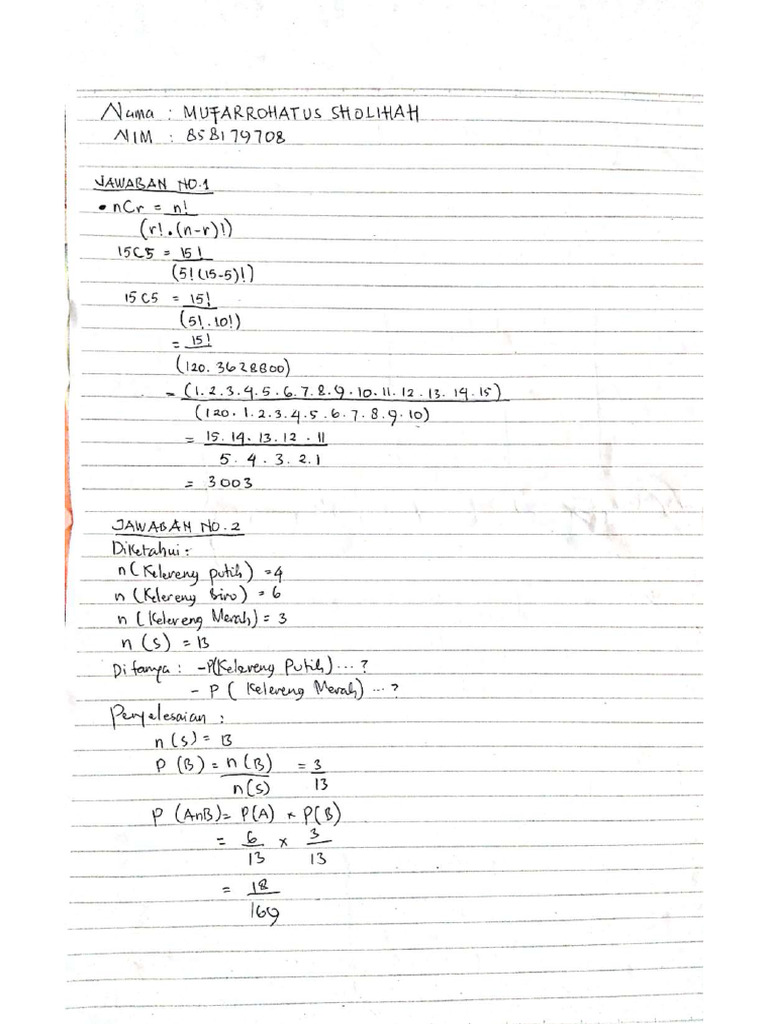 Nama : MUFARROHATUS SHOLIHAH
NIM : 858179708
JAWABAN NO.1
• nCr = n!
(r!.(n-r)!)
15C5 = 15!
(5!(15-5)!)
15C5 = 15!
(5!.10!)
= 15!
(120.3628800)
= (1.2.3.4.5.6.7.8.9.10.11.12.13.14.15)
(120.1.2.3.4.5.6.7.8.9.10)
= 15.14.13.12.11
5.4.3.2.1
= 3003
JAWABAN NO.2
Diketahui:
n (Kelereng putih) = 4
n (Kelereng Biru) = 6
n (Kelereng Merah) = 3
n (s) = 13
Ditanya : - P(Kelereng Putih) ... ?
- P ( Kelereng Merah) ... ?
Penyelesaian :
n(s) = 13
P (B) = n(B) = 3
n(s) 13
P (AnB) = P(A) x P(B)
= 6 x 3
13 13
= 18
169